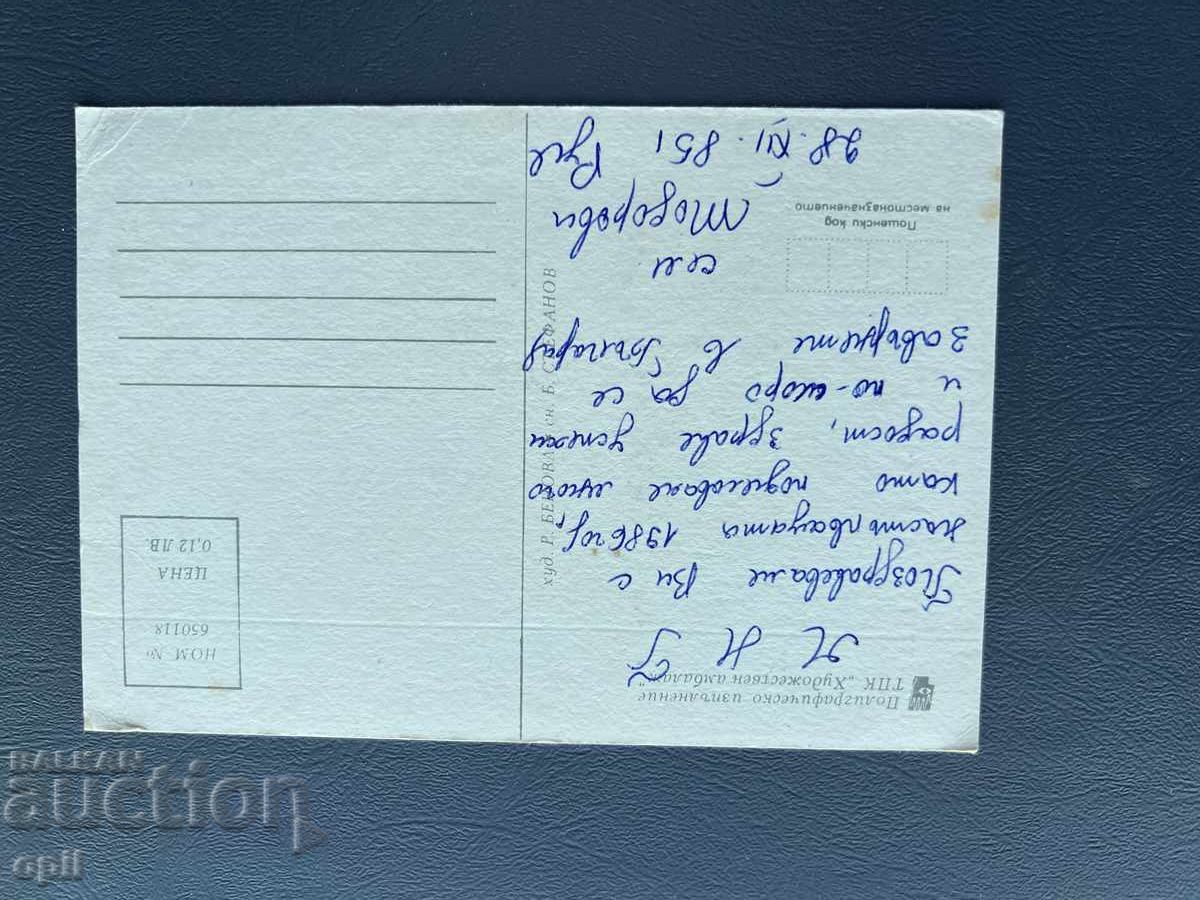 Полиграфическо изпълнение
ТПК „Художествен амбалаж“
Ч Н Г
Поздравеваме Ви с
настъпващата 1986 год,
като пожелаваме много
радост, здраве успехи
и по-скоро да се
завърнете в България
сем
Тодорови
28. XII. 85г Русе
Пощенски код
на местоназначението
худ. Р. БЕКОВА сн. Б. СТЕФАНОВ
НОМ №
650118
ЦЕНА
0,12 ЛВ.
BALKAN
auction
opii